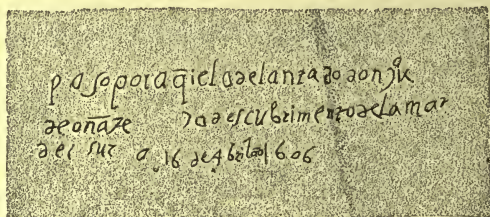 paso por aq̄i el adelantado don juº
de oñate descubrimento de la mar
del sur a 16 de Abril 1606